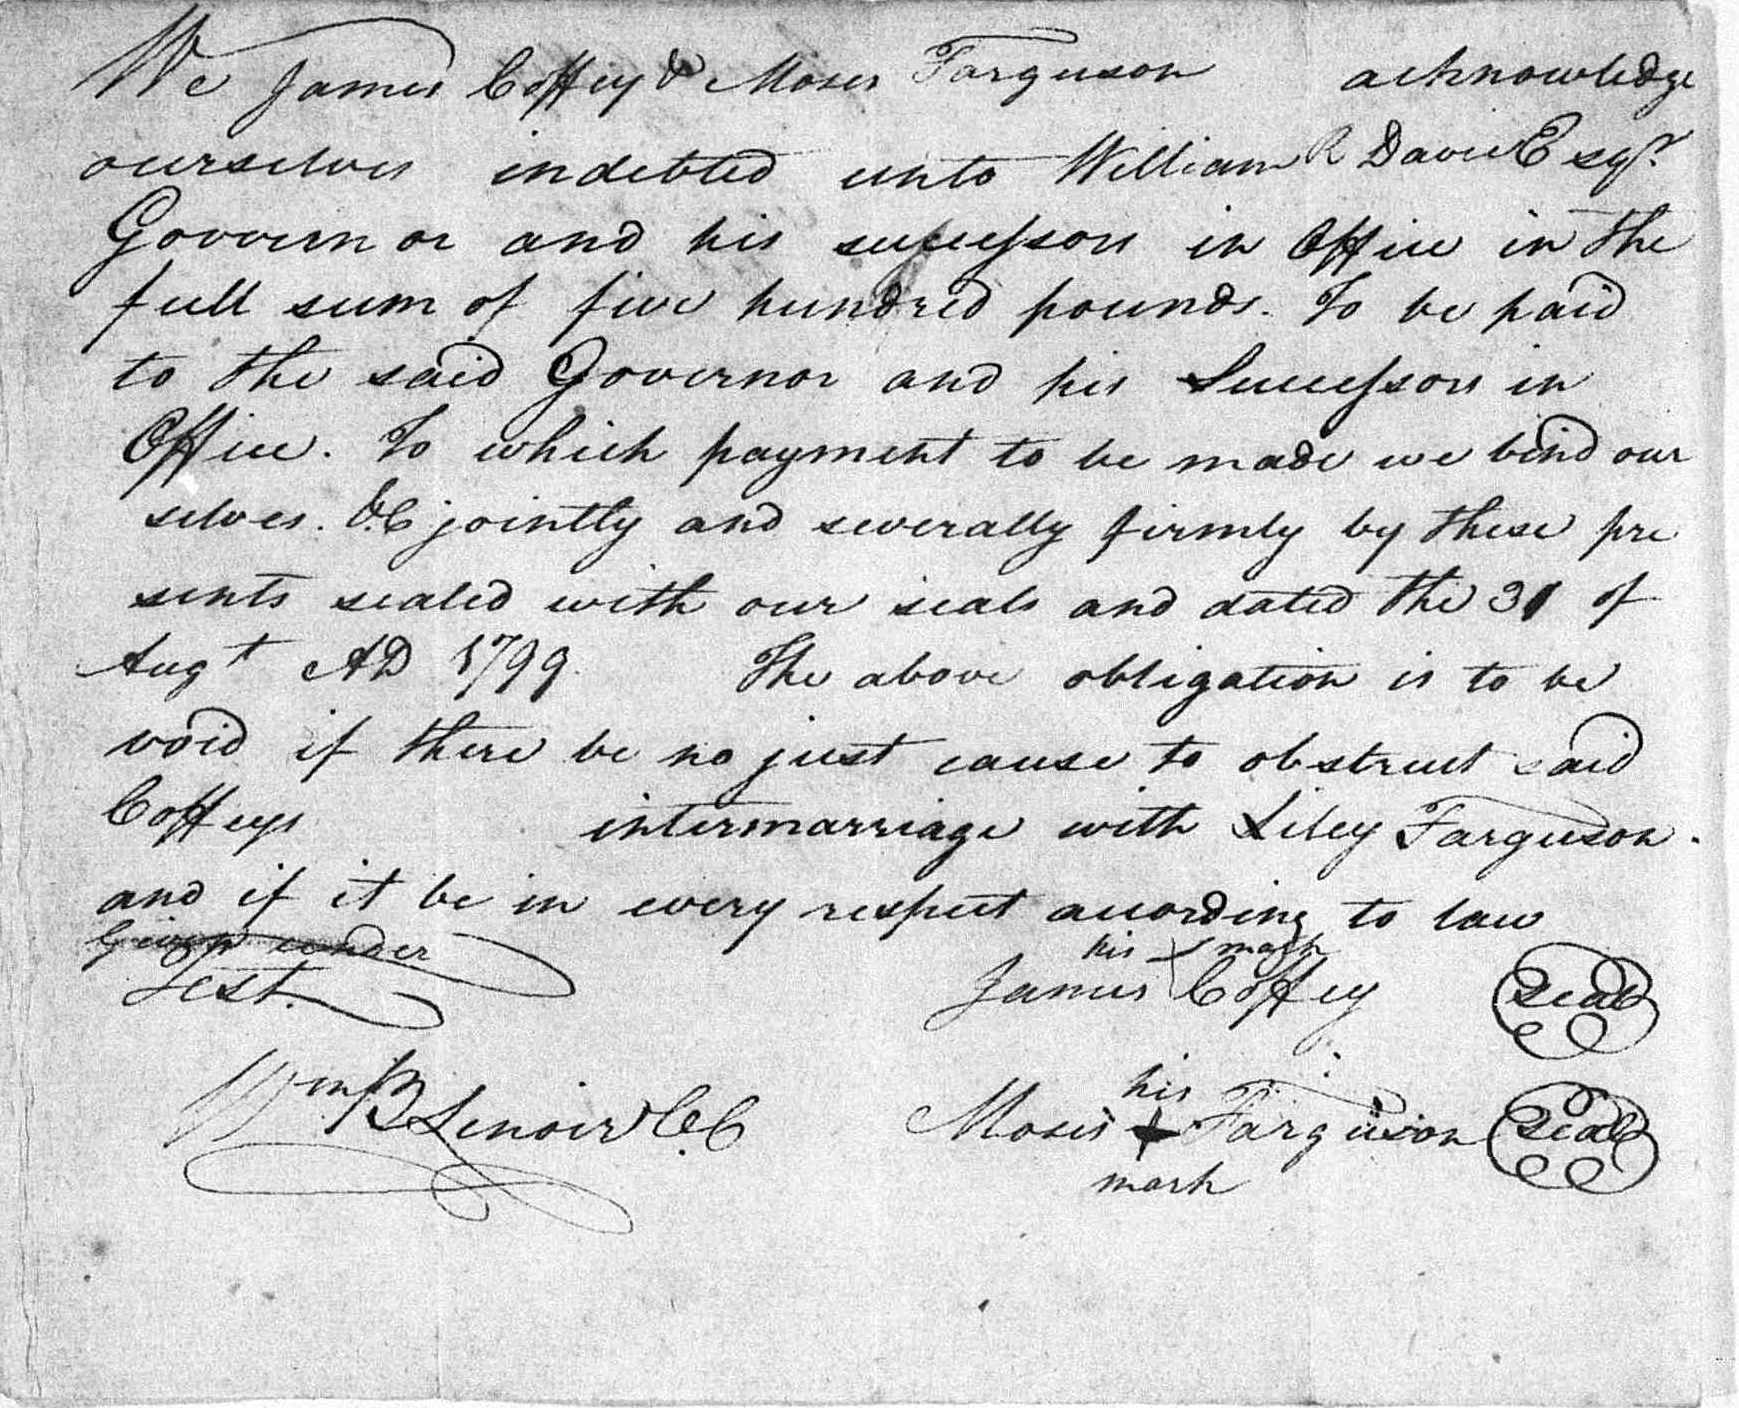 We James Coffey & Moses Farguson acknowledge
ourselves indebted unto William R Davie Esqr.
Governor and his successors in Office in the
full sum of five hundred pounds. To be paid
to the said Governor and his Successors in
Office. To which payment to be made we bind our
selves. &C jointly and severally firmly by these pre
sents sealed with our seals and dated the 31 of
Augt AD 1799. The above obligation is to be
void if there be no just cause to obstruct said
Coffeys intermarriage with Liley Farguson.
and if it be in every respect according to law
Given under
Test.
his mark
James X Coffey Seal
Wm B Lenoir C.C
his
Moses + Farguson Seal
mark